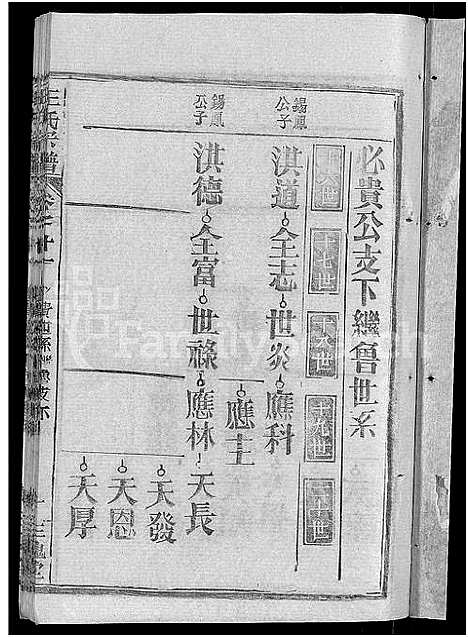 必貴公支下繼魯世系
十六世
十七世
十八世
十九世
二十世
錫鳳公子
洪道 全志 世炎 應科
應主
錫鳳公子
洪德 全富 世祿 應林 天長
天發
天恩
天厚
王氏宗譜